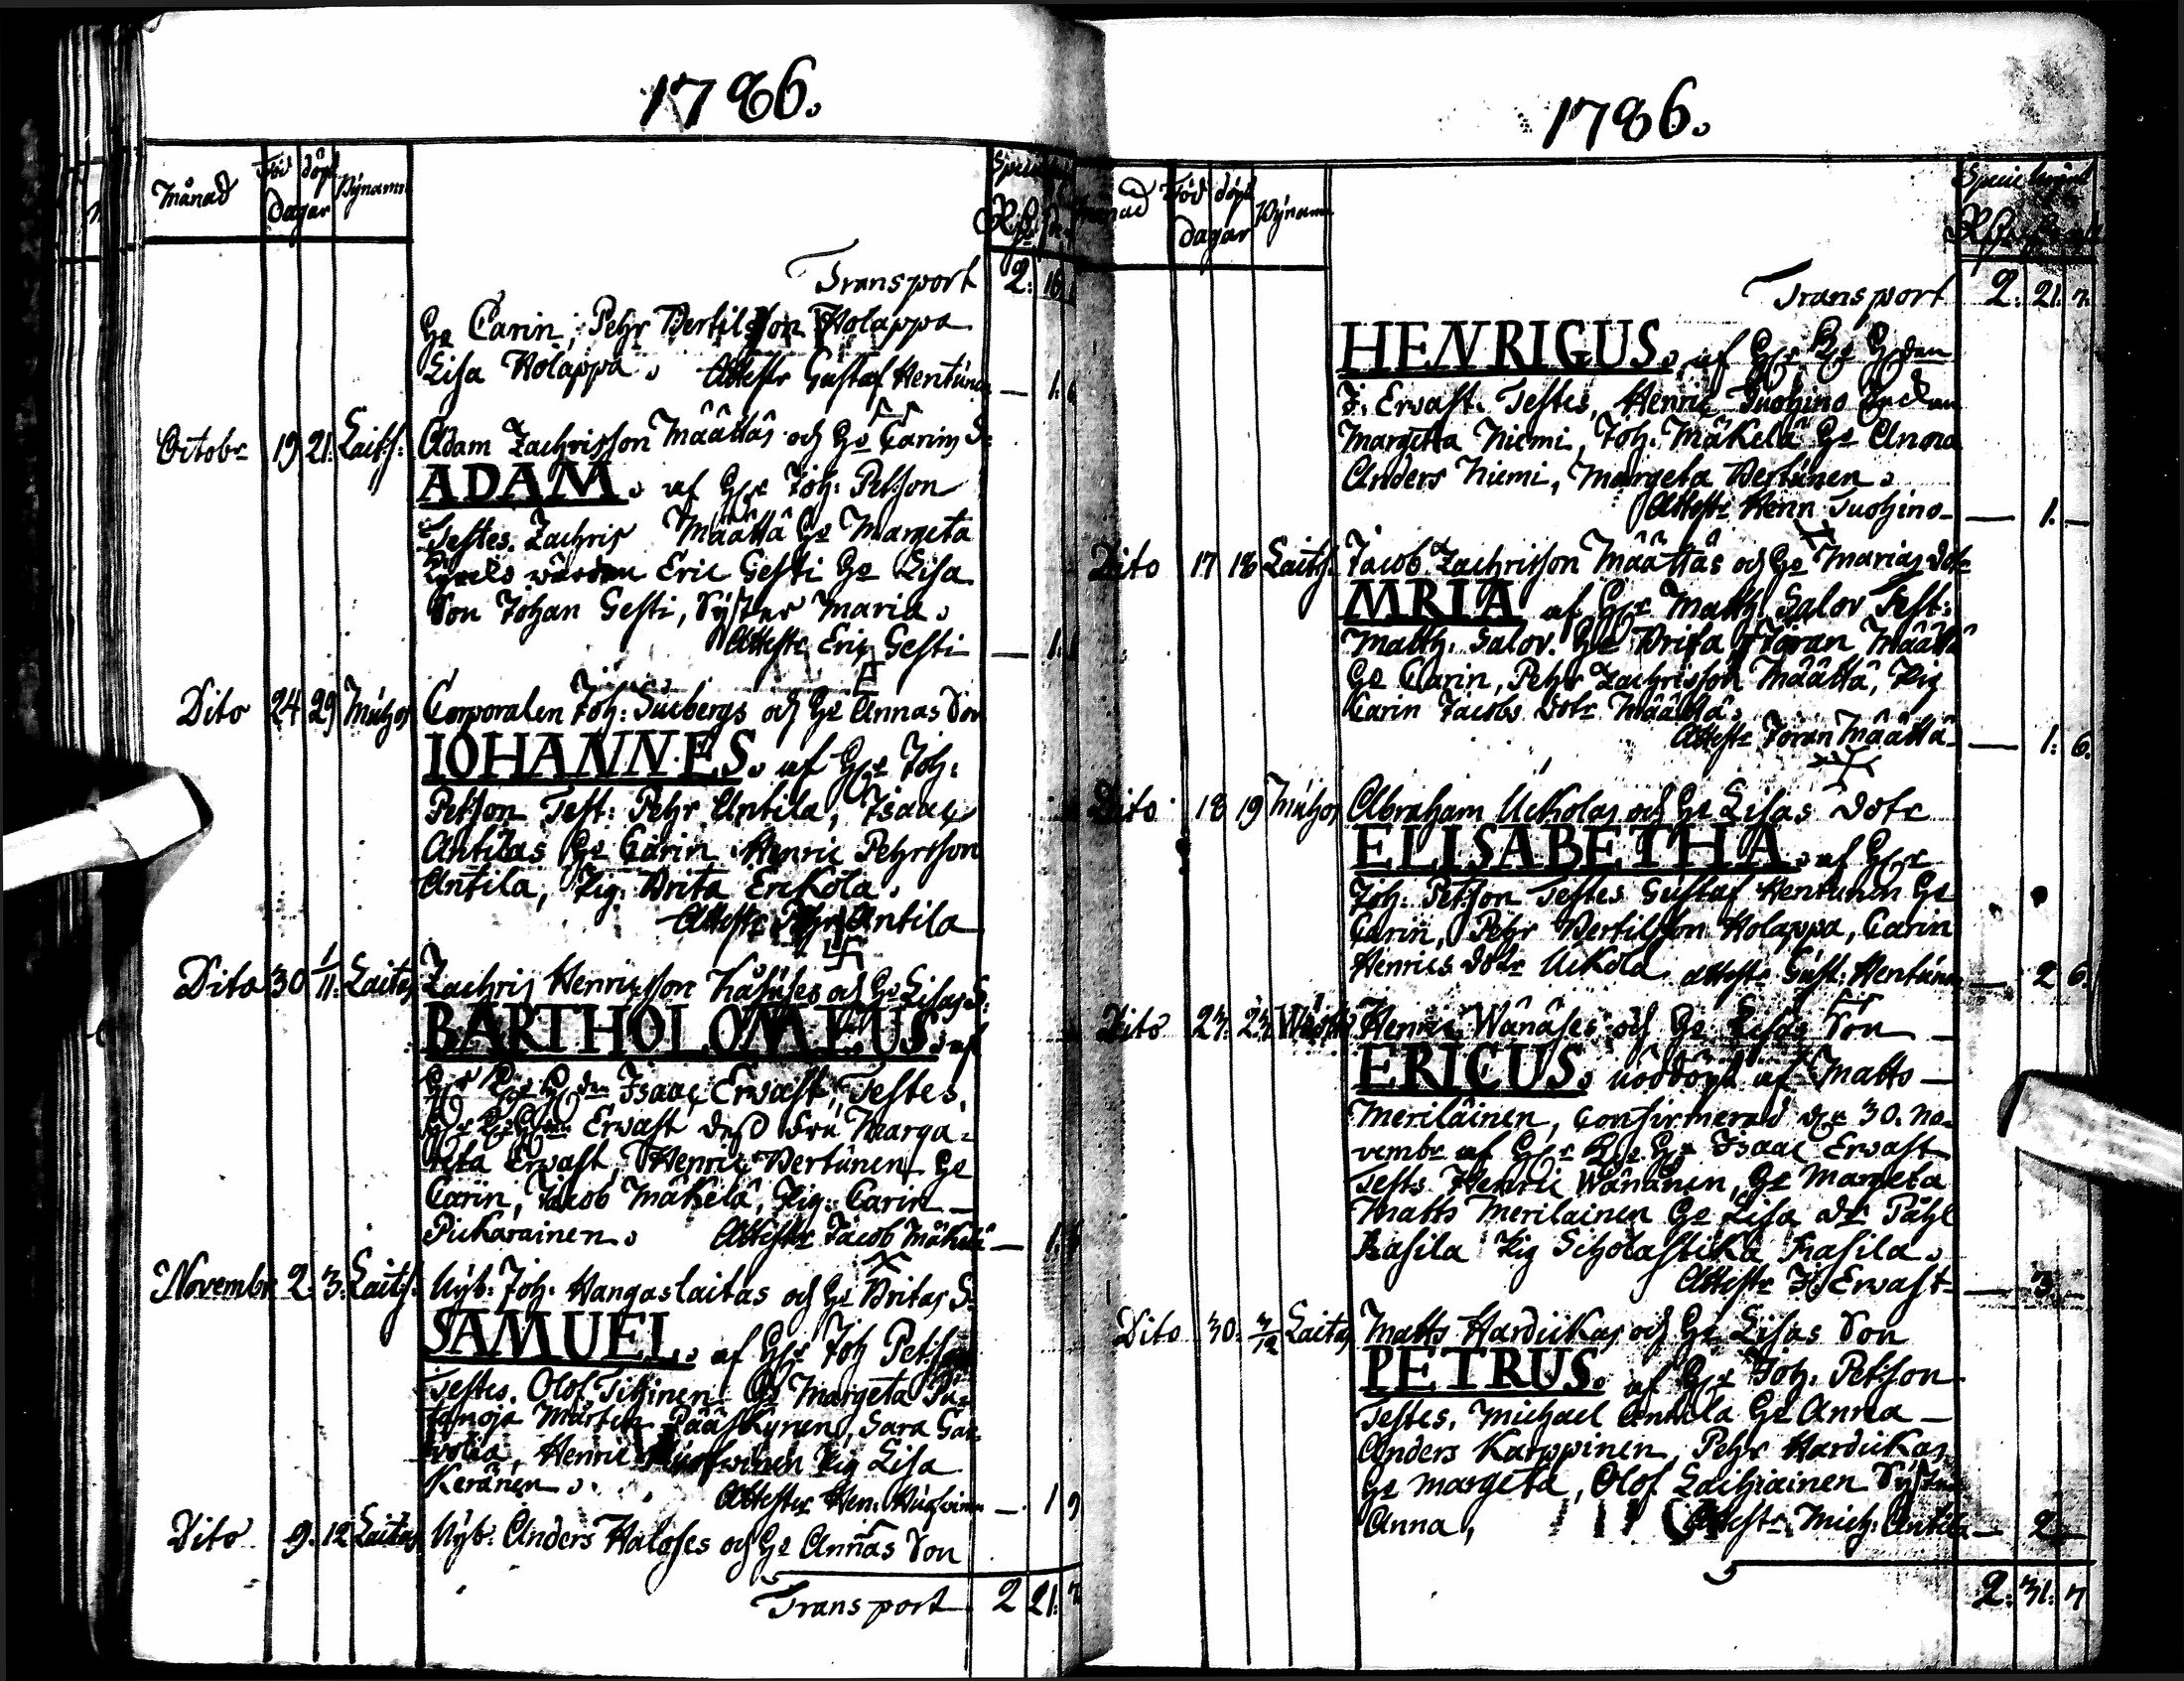 1786.
Månad Föd döpt Bÿnamn
Dagar
Transport 2. 16
Hu Carin, Pehr Bertilsson Holappa
Lisa Holappa. Attestr Gustaf Hentunen — 1. 6
Octobr 19 21. Laits. Adam Zachrisson Määttäs och Hu Carins S:
ADAM. af Hr Joh: Petsson
Testes. Zachris Määttä Hu Margeta
Eric Gesti Hu Lisa
Son Johan Gesti, Sÿster Maria.
Attestr Eric Gesti — 1.
Dito 24 29 Muhos Corporalen Joh: Suebergs och Hu Annas Son
IOHANNES. af Hr Joh:
Petsson Test: Pehr Antila, Isaac
Antilas Hu Carin Henric Pehrsson
Antila, Pig: Brita Erkola.
Attestr Pehr Antila
Dito 30 1/11. Laitas Zachris Henricsson Hu Lisas S:
BARTHOLOMEUS. af
Isaac Erwast, Testes,
Erwast dess Fru Marga-
reta Erwast, Henric Vertunen Hu
Carin, Jacob Mäkelä, Pig: Carin —
Pickarainen. Attestr Jacob Mäkelä — 1.
Novembr 2. 3. Laits. Nÿb: Joh: Kangaslaitas och Hu Britas S:
SAMUEL. af Hr Joh Petsson
Testes. Olof Tihinen Hu Margeta
Mårten Pääskÿnen, Sara
Henric Pig Lisa
Keränen. Attester Hen: — 1 9
Dito 9. 12 Laitas Nÿb: Anders Haloses och Hu Annas Son
Transport 2 21. 7
1786.
Månad Föd döpt Bÿnamn
Dagar
Transport 2. 21. 7.
HENRICUS. af Hr
I. Erwast. Testes, Henric Tuohino
Margetta Niemi, Joh. Mäkelä Hu Anna
Anders Niemi, Margeta Vertunen.
Attestr Henr Tuohino — 1. —
Dito 17 18 Laits. Jacob Zachrisson Määttäs och Hu Marias dotr
MRIA af Hr Matth: Salov Test:
Matth: Salov. Hu Brita Jöran Määttä
Hu Carin, Pehr Zachrisson Määttä, Pig
Carin Jacobs dotr Määttä.
Attestr Jöran Määttä — 1. 6.
Dito 18 19 Muhos Abraham Uckolas och Hu Lisas dotr
ELISABETHA. af Hr
Joh: Petsson Testes Gustaf Hentunen Hu
Carin, Pehr Bertilsson Holappa, Carin
Henrics dotr Uckola Attestr Gust: Hentunen — 2 6.
Dito 23. Henric Wänäses och Hu Lisas Son —
ERICUS. nöddöpt af Matts —
Meriläinen, Confirmerad den 30. No-
vembr af Hr Isaac Erwast
Tests. Henric Wänänen, Hu Margeta
Matts Merilainen Hu Lisa Påhl
Kasila Pig Scholastika Kasila.
Attestr I. Erwast — 3. —
Dito 30. 3/12 Laitas Matts Hardickas och Hu Lisas Son
PETRUS. af Hr Joh. Petsson
Testes, Michael Antila Hu Anna —
Anders Karppinen, Pehr Hardickas
Hu Margeta, Olof Laitiainen Sÿster
Anna, Attestr Mich: Antila — 2 —
2. 31. 7